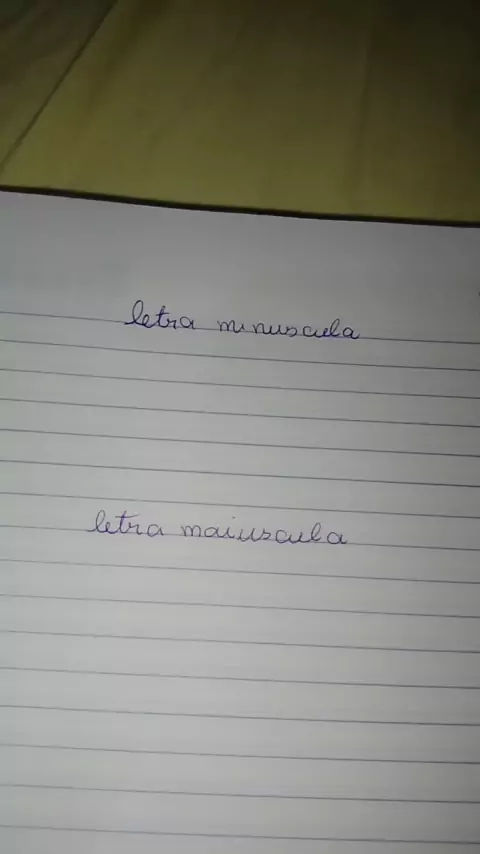 letra minuscula
letra maiuscula